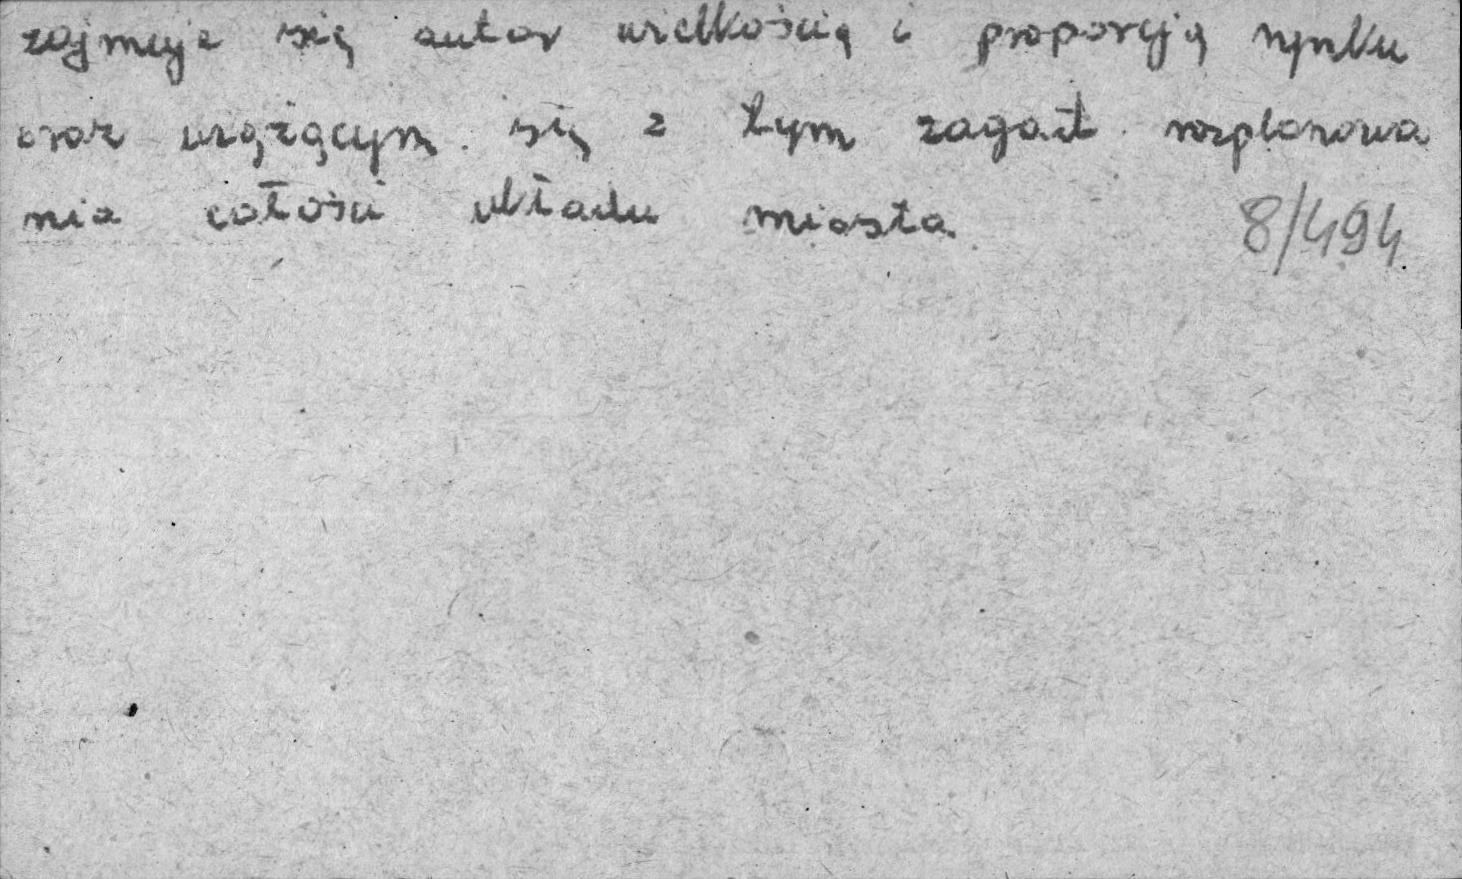 zajmuje się autor wielkością i proporcją rynku
oraz wiążącym się z tym zagad. rozplanowa
nia całości układu miasta.
8/494